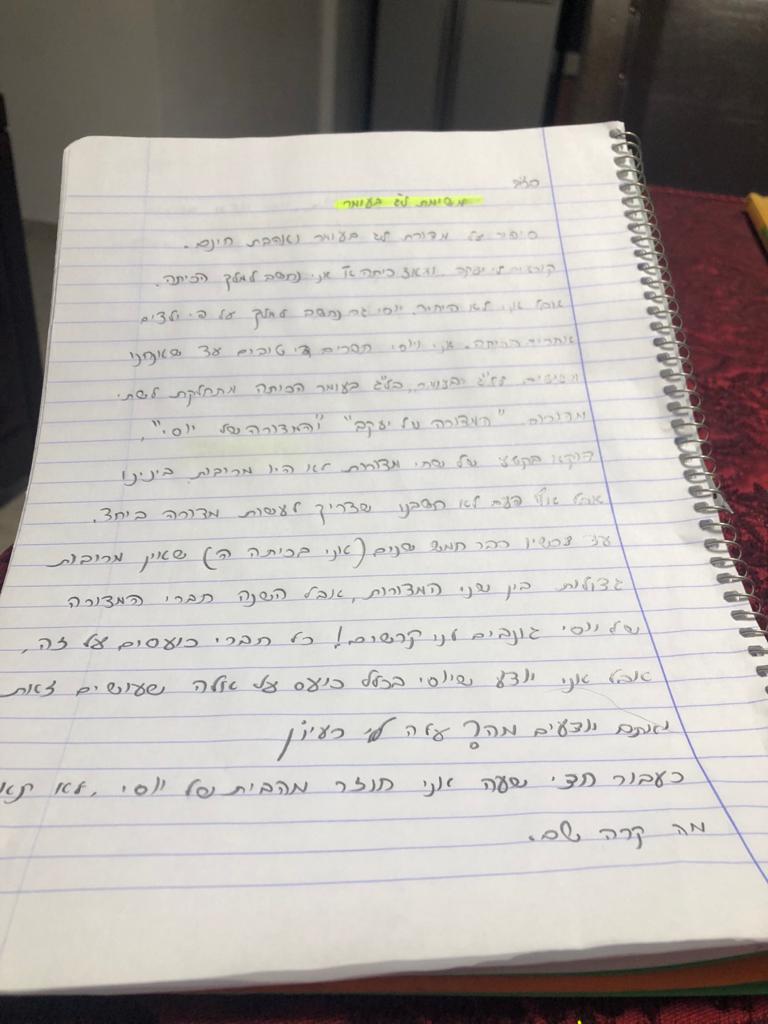 בס"ד
משימת לג בעומר
סיפור על מדורת לג בעומר ואהבת חינם.
קוראים לי יעקב ומאז כיתה א' אני נחשב למלך הכיתה.
אבל אני לא היחיד. יוסי גם נחשב למלך על פי ילדים
אחרים בכיתה. אני ויוסי חברים די טובים עד שאנחנו
מגיעים לל"ג בעומר, בל"ג בעומר הכיתה מתחלקת לשתי
מדורות. "המדורה של יעקב" ו"המדורה של יוסי".
דווקא בקטע של שתי מדורות לא היו מריבות בינינו
אבל אף פעם לא חשבנו שצריך לעשות מדורה ביחד.
עד עכשיו כבר חמש שנים (אני בכיתה ה) שאין מריבות
גדולות בין שני המדורות, אבל השנה חברי המדורה
של יוסי גונבים לנו קרשים! כל חברי כועסים על זה,
אבל אני יודע שיוסי בכלל כועס על אלה שעושים זאת
ואתם יודעים מה? עלה לי רעיון
כעבור חצי שעה אני חוזר מהבית של יוסי, לא
מה קרה שם.